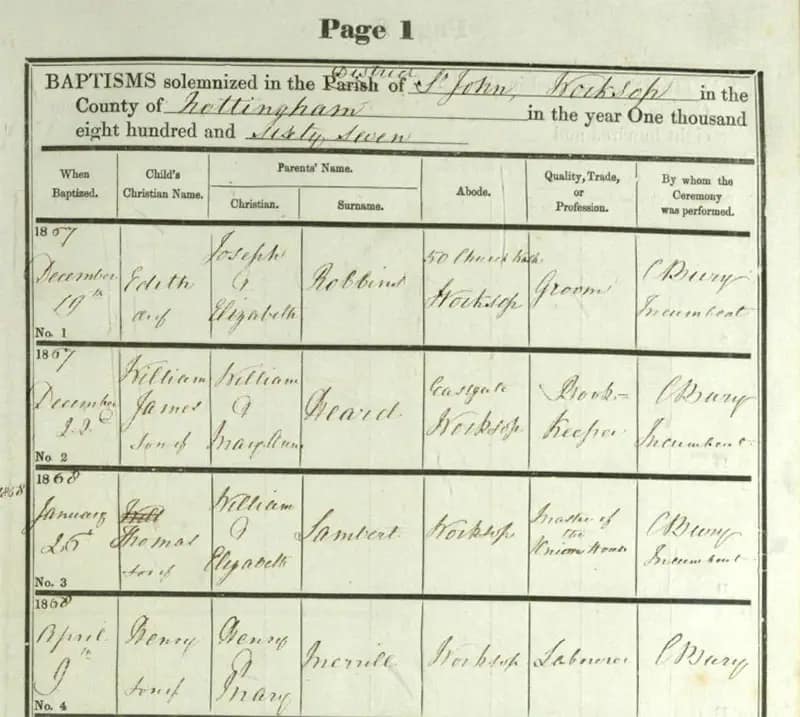 Page 1
BAPTISMS solemnized in the Parish District of St John, Worksop in the
County of Nottingham in the year One thousand
eight hundred and sixty seven
When Baptized.
Child's Christian Name.
Parents' Name.
Christian.
Surname.
Abode.
Quality, Trade, or Profession.
By whom the Ceremony was performed.
1867
December
19th
No. 1
Edith
Joseph
&
Elizabeth
Robbins
50
Worksop
Groom
C Bury
Incumbent
1867
December
22d
No. 2
William
James
son of
William
&
Mary Ann
Heard
Eastgate
Worksop
Book-
Keeper
C Bury
Incumbent
1868
1868
January
No. 3
Will
Thomas
son of
William
&
Elizabeth
Lambert
Worksop
Master of
the
Union House
C Bury
Incumbent
1868
April
9th
No. 4
Henry
son of
Henry
&
Mary
Merrill
Worksop
Labourer
C Bury